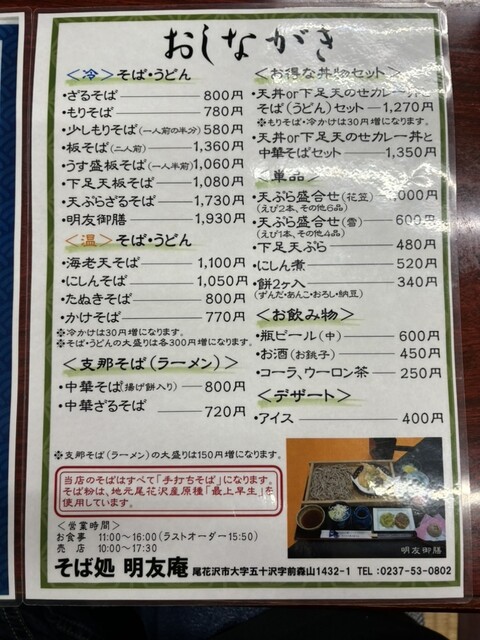 おしながき
<冷>そば・うどん
・ざるそば 800円
・もりそば 780円
・少しもりそば(一人前の半分) 580円
・板そば(二人前) 1,360円
・うす盛板そば(一人半前) 1,060円
・下足天板そば 1,080円
・天ぷらざるそば 1,730円
・明友御膳 1,930円
<温>そば・うどん
・海老天そば 1,100円
・にしんそば 1,050円
・たぬきそば 800円
・かけそば 770円
※冷かけは30円増になります。
※そば・うどんの大盛りは各300円増になります。
<支那そば(ラーメン)>
・中華そば(揚げ餅入り) 800円
・中華ざるそば 720円
※支那そば(ラーメン)の大盛りは150円増になります。
当店のそばはすべて「手打ちそば」になります。
そば粉は、地元尾花沢産原種「最上早生」を
使用しています。
<営業時間>
お食事 11:00~16:00(ラストオーダー15:50)
売店 10:00~17:30
<お得な丼物セット>
・天丼or下足天のせカレー丼と
そば(うどん)セット 1,270円
※もりそば・冷かけは30円増になります。
・天丼or下足天のせカレー丼と
中華そばセット 1,350円
<単品>
・天ぷら盛合せ(花笠) 1,000円
(えび2本、その他6品)
・天ぷら盛合せ(雪) 600円
(えび1本、その他4品)
・下足天ぷら 480円
・にしん煮 520円
・餅2ヶ入 340円
(ずんだ・あんこ・おろし・納豆)
<お飲み物>
・瓶ビール(中) 600円
・お酒(お銚子) 450円
・コーラ、ウーロン茶 250円
<デザート>
・アイス 400円
明友御膳
そば処 明友庵 尾花沢市大字五十沢字前森山1432-1 TEL:0237-53-0802